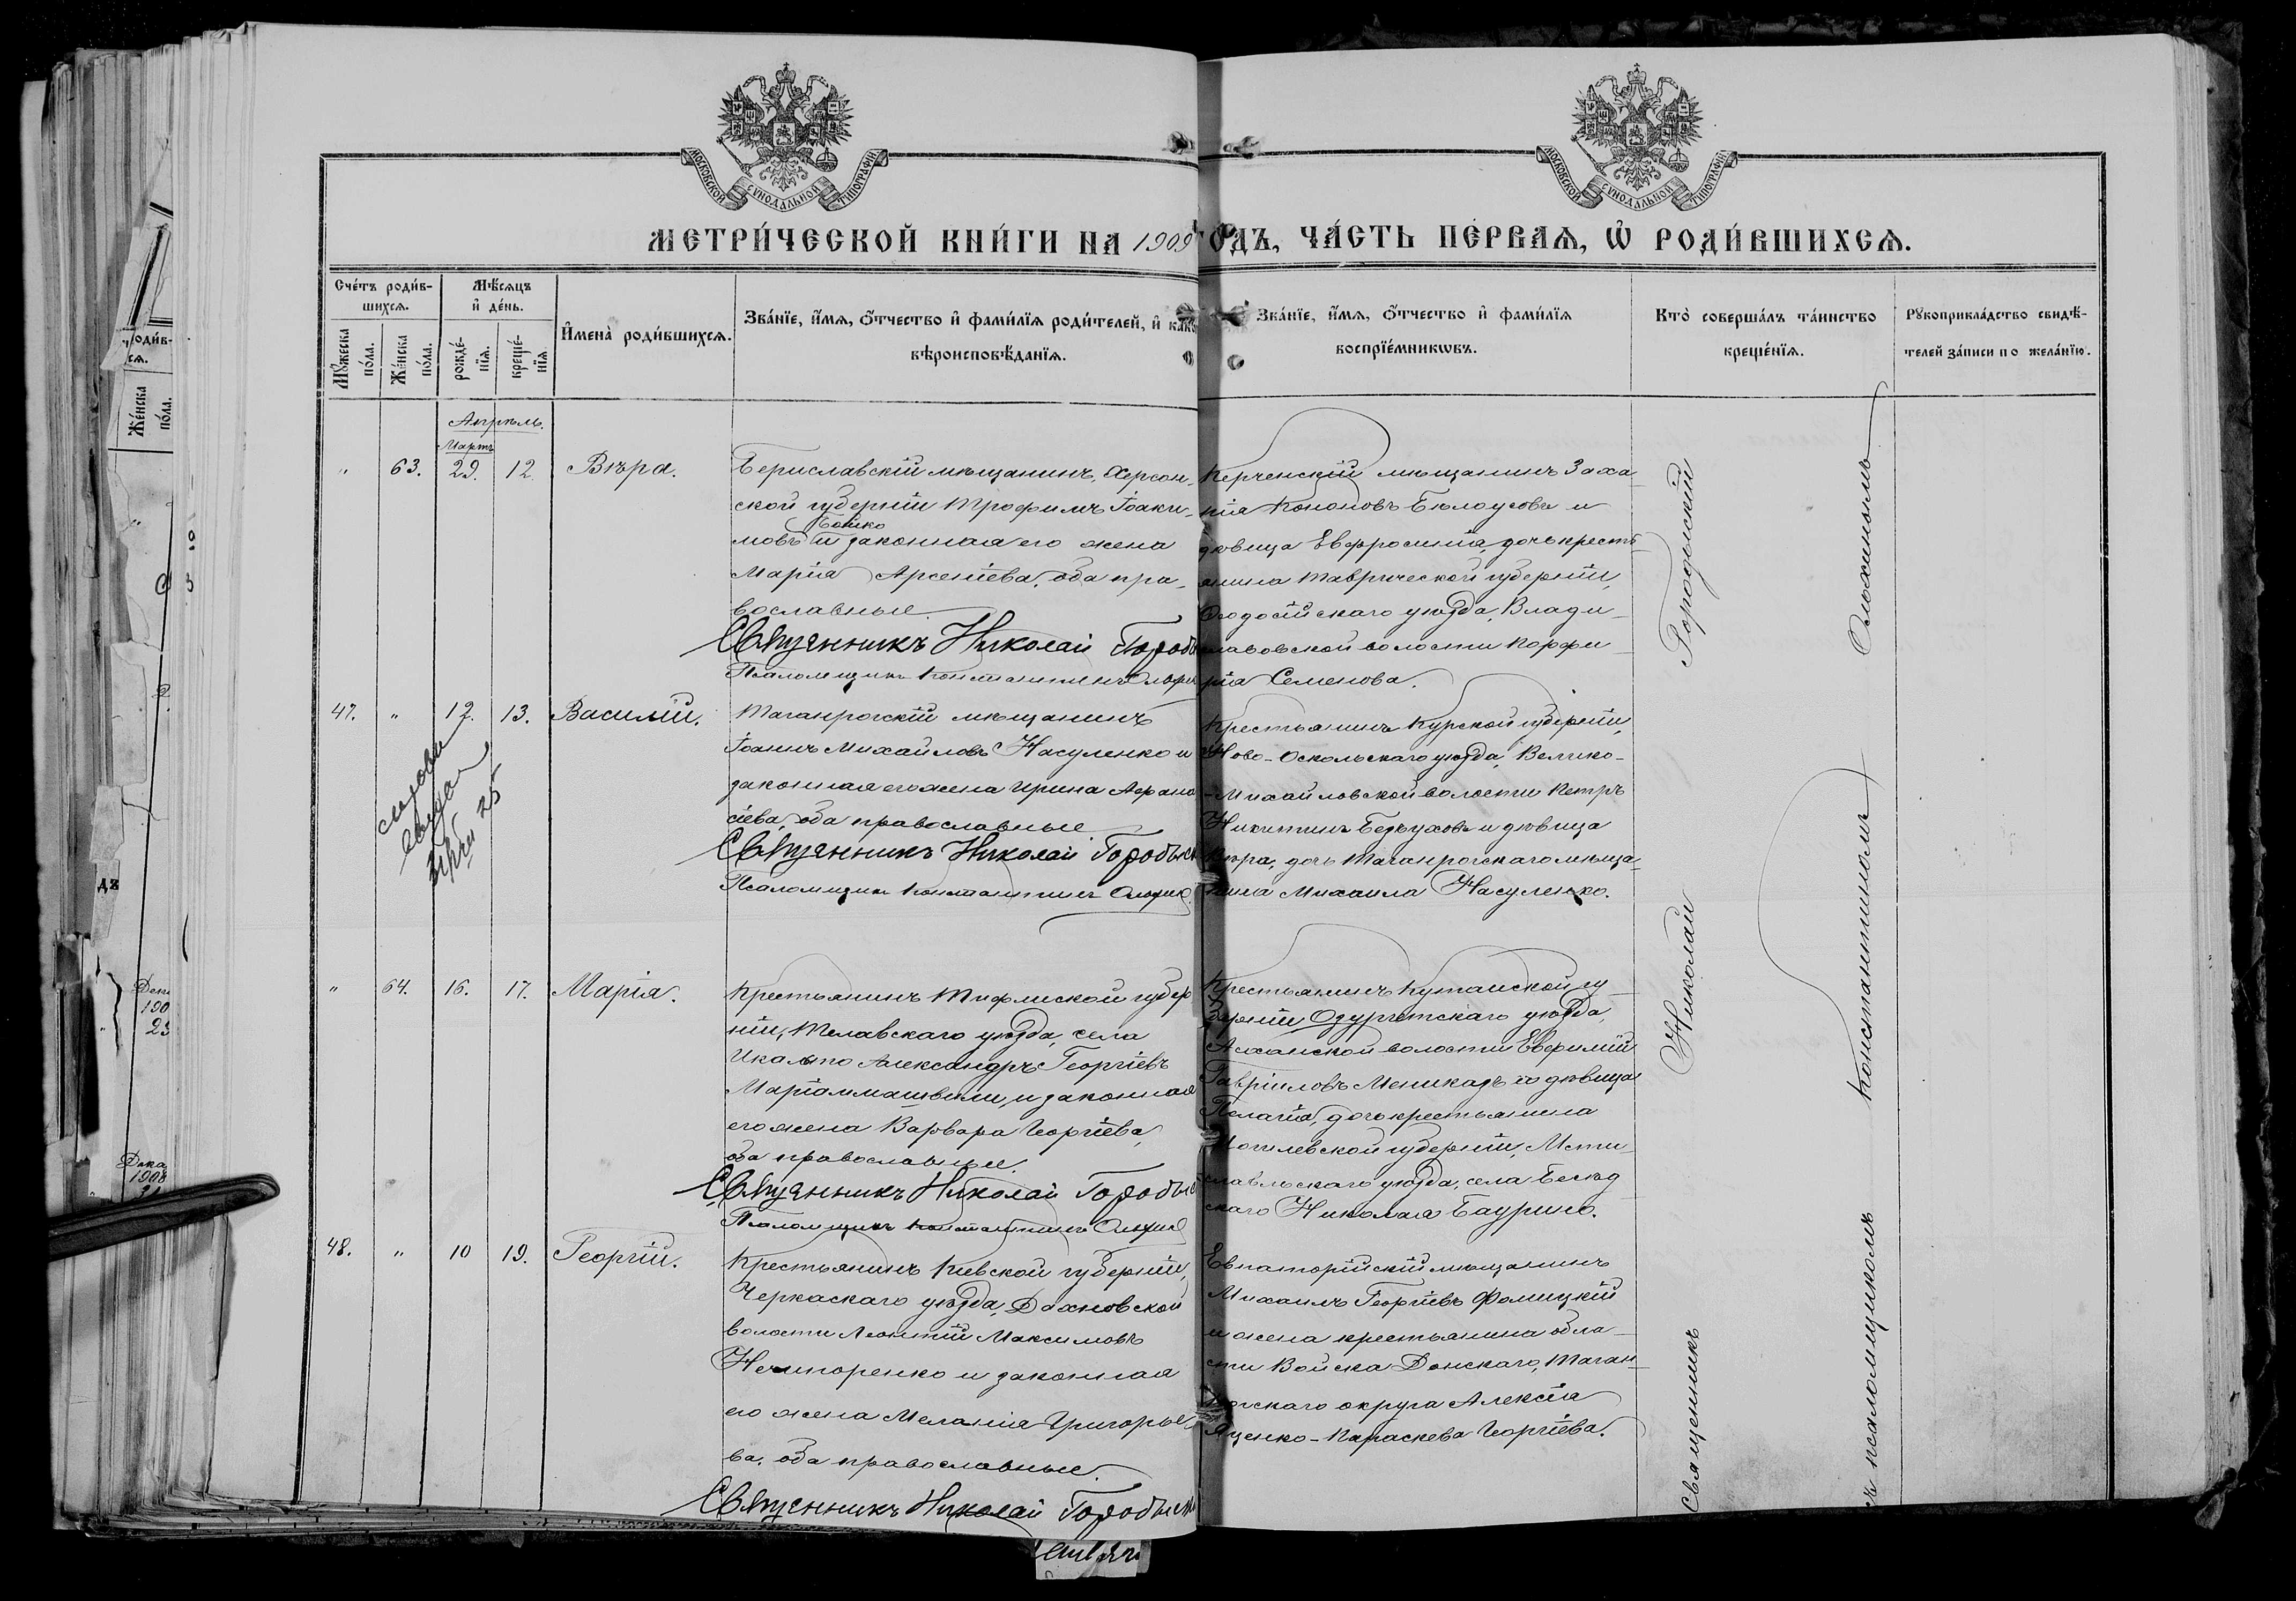 МОСКОВСКОЙ СѴНОДАЛЬНОЙ ТИПОГРАФІИ
МОСКОВСКОЙ СѴНОДАЛЬНОЙ ТИПОГРАФІИ
МЕТРИ́ЧЕСКОЙ КНИ́ГИ НА 1909 ГОДЪ, ЧА́СТЬ ПЕ́РВАѦ, Ѡ РОДИ́ВШИХСѦ.
Сче́тъ роди́в-
шихсѧ.
Мꙋ́жеска по́ла.
Же́нска по́ла.
Мѣ́сяцъ
и҆ де́нь.
рожде́-
нїѧ.
креще́-
нїѧ
И҆мена̀ роди́вшихсѧ.
Зва́нїе, и҆́мѧ, ѻ҆́тчество и҆ фами́лїѧ роди́телей, и҆ как
вѣроисповѣ́данїѧ.
Зва́нїе, и҆́мѧ, ѻ҆́тчество и҆ фами́лїѧ
воспрїе́мникѡвъ.
Кто̀ соверша́лъ та́инство
креще́нїѧ.
Рꙋкоприкла́дство свидѣ́-
телей за́писи по жела́нїю.
Апрѣль.
Мартъ
" 63. 29. 12. Вѣра.
Бериславскій мѣщанинъ, Херсон-
ской губерніи Трофимъ Іоаки-
Бойко
мовъ и законная его жена
Марія Арсеніева, оба пра-
вославные.
Священникъ Николай Городы
Псаломщикъ Константинъ
Керченскій мѣщанинъ Заха
рія Кононовъ Бѣлоусовъ и
дѣвица Евфросинія, дочь кресть
янина Таврической губерніи,
Ѳеодосійскаго уѣзда, Влади-
славовской волости Порфи-
рія Семенова.
47. " 12. 13. Василій.
Таганрогскій мѣщанинъ
Іоаннъ Михайловъ Насуленко и
законная его жена Ирина Афана
сіева, оба православные
Священникъ Николай Городыс
Псаломщикъ Константинъ
Крестьянинъ Курской губерніи,
Ново-Оскольскаго уѣзда, Велико-
-Михайловской волости Петръ
Никитинъ и дѣвица
Вѣра, дочь Таганрогскаго мѣща-
нина Михаила Насуленко.
" 64. 16. 17. Марія.
Крестьянинъ Тифлиской губер
ніи, Телавскаго уѣзда, села
Икальто Александръ Георгіевъ
Маріаммашвили, и законная
его жена Варвара Георгіева,
оба православные.
Священникъ Николай Городыс
Псаломщикъ Константинъ
Крестьянинъ Кутаиской гу-
берніи Озургетскаго уѣзда,
Асканской волости Евфимій
Гавріиловъ и дѣвица
Пелагія, дочь крестьянина
Могилевской губерніи, Мсти-
славльскаго уѣзда, села Бесѣд
скаго Николая Баурина.
48. " 10 19. Георгій.
Крестьянинъ Кіевской губерніи,
Черкаскаго уѣзда, Дахновской
волости Леонтій Максимовъ
Нечипоренко и законная
его жена Меланія Григорье-
ва, оба православные.
Священникъ Николай Городыск
Евпаторійскій мѣщанинъ
Михаилъ Георгіевъ Фомицкій
и жена крестьянина обла-
сти Войска Донскаго, Таган-
рогскаго округа Алексія
Яценко - Параскева Георгіева.
Священникъ Николай Городыскій
съ псаломщикомъ Константиномъ